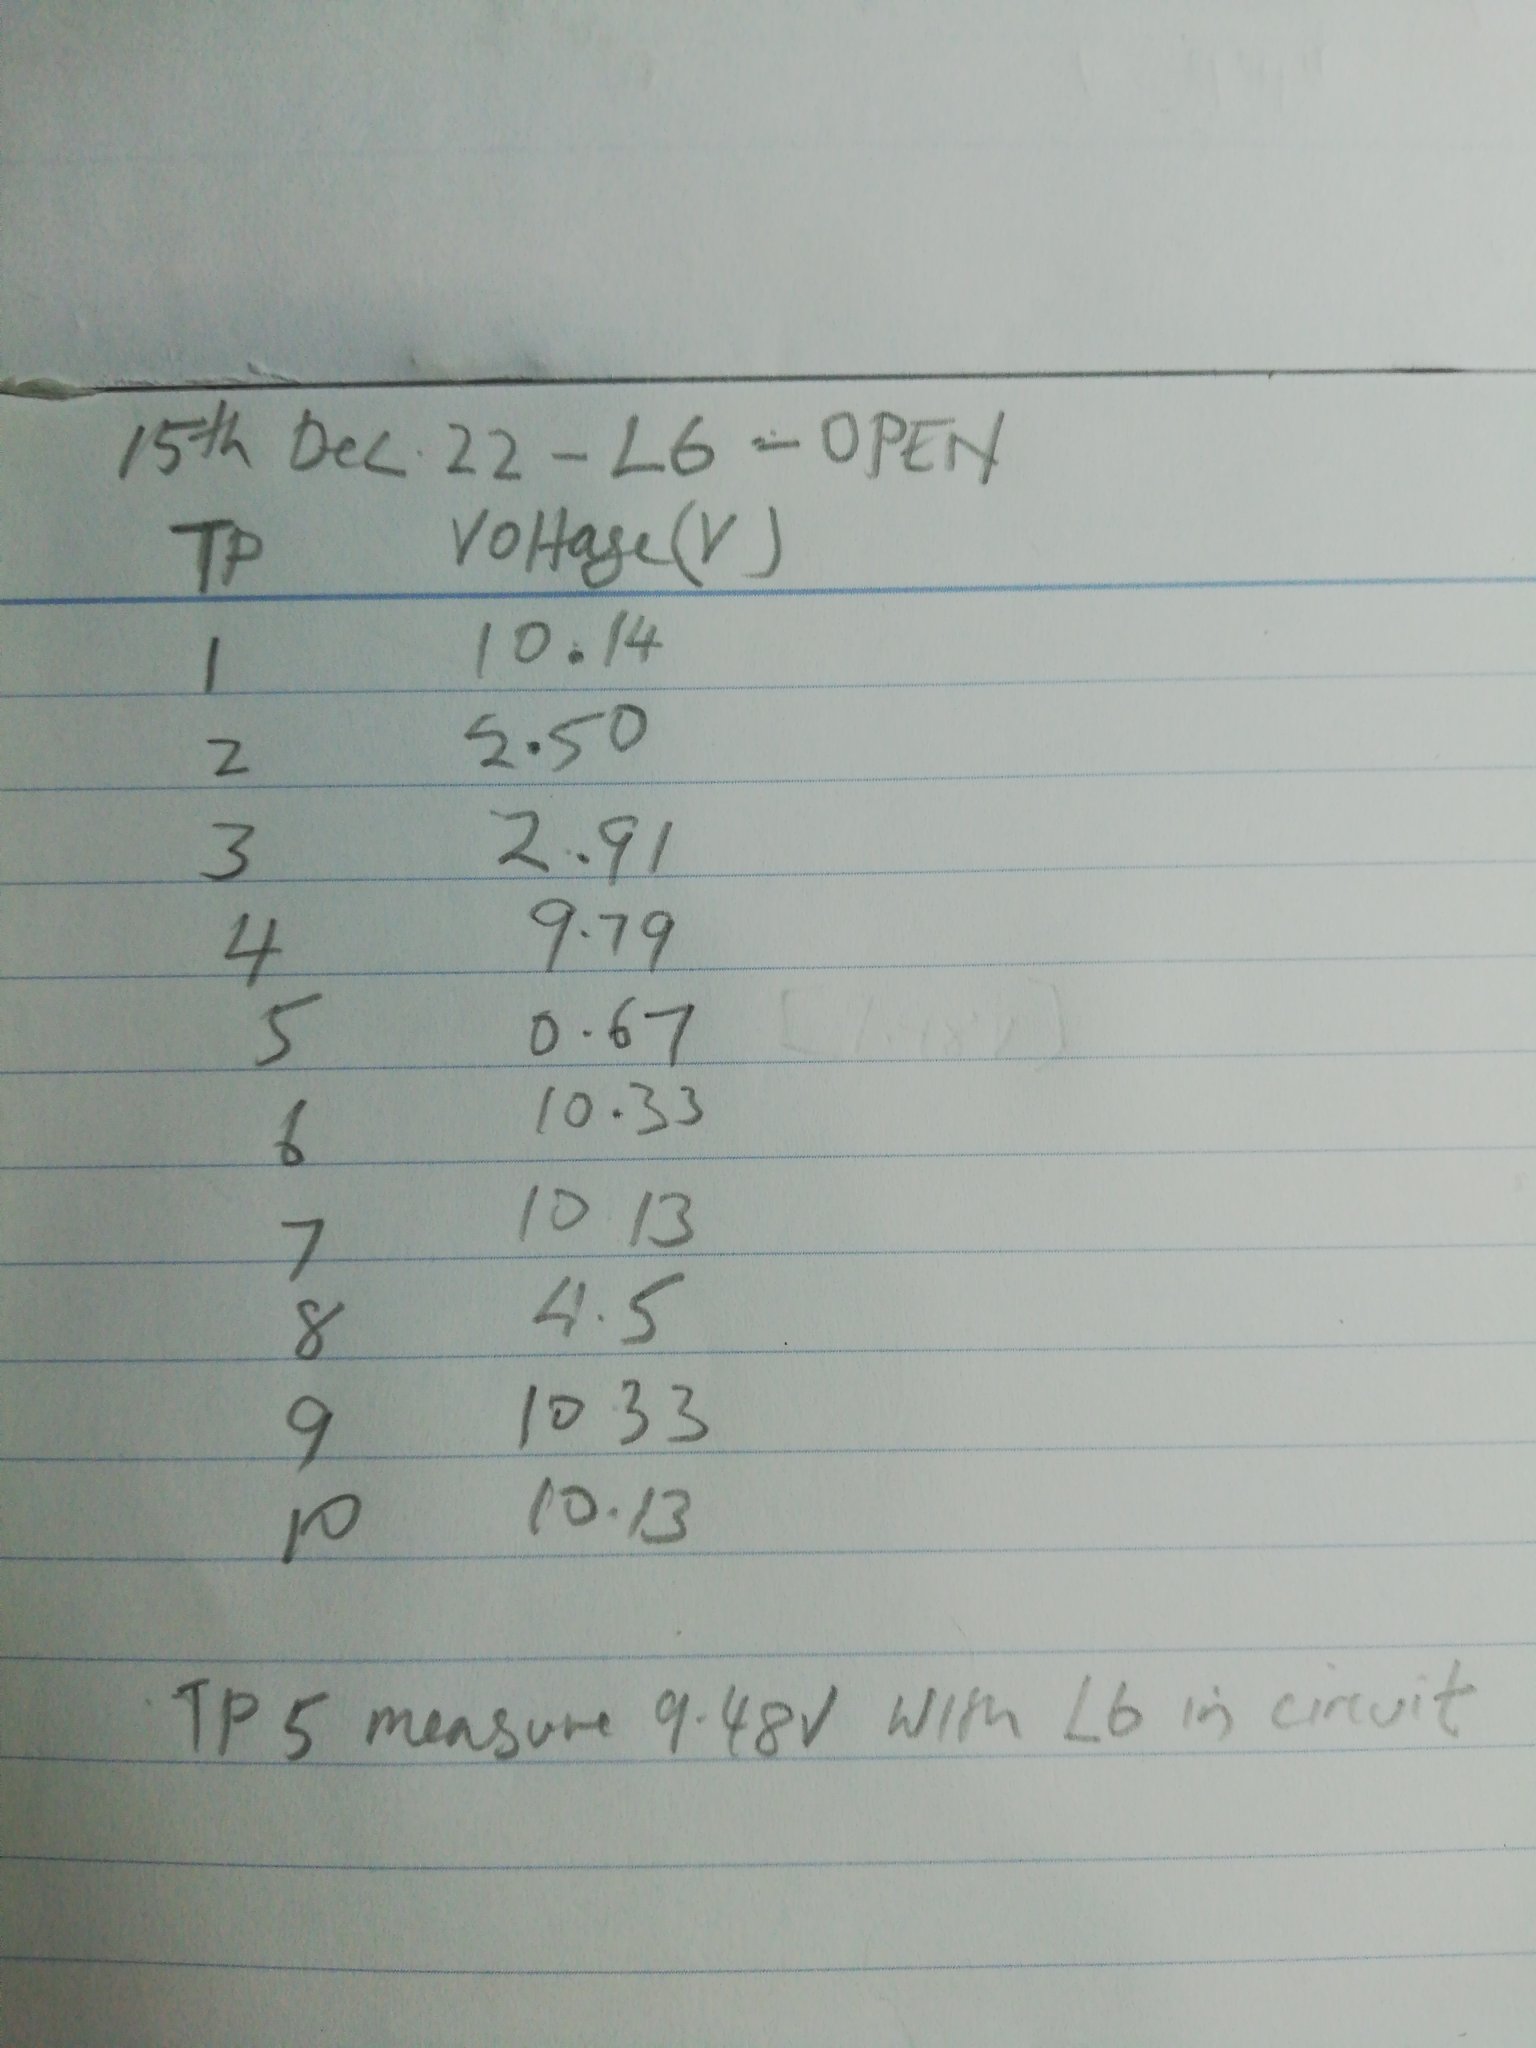 15th Dec. 22 - L6 - OPEN
TP Voltage (V)
1 10.14
2 2.50
3 2.91
4 9.79
5 0.67
6 10.33
7 10 13
8 4.5
9 10 33
10 10.13
TP 5 measure 9.48V with L6 in circuit